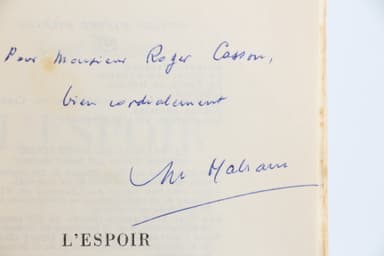 Pour Monsieur Roger Casson,
bien cordialement
Malraux
L'ESPOIR